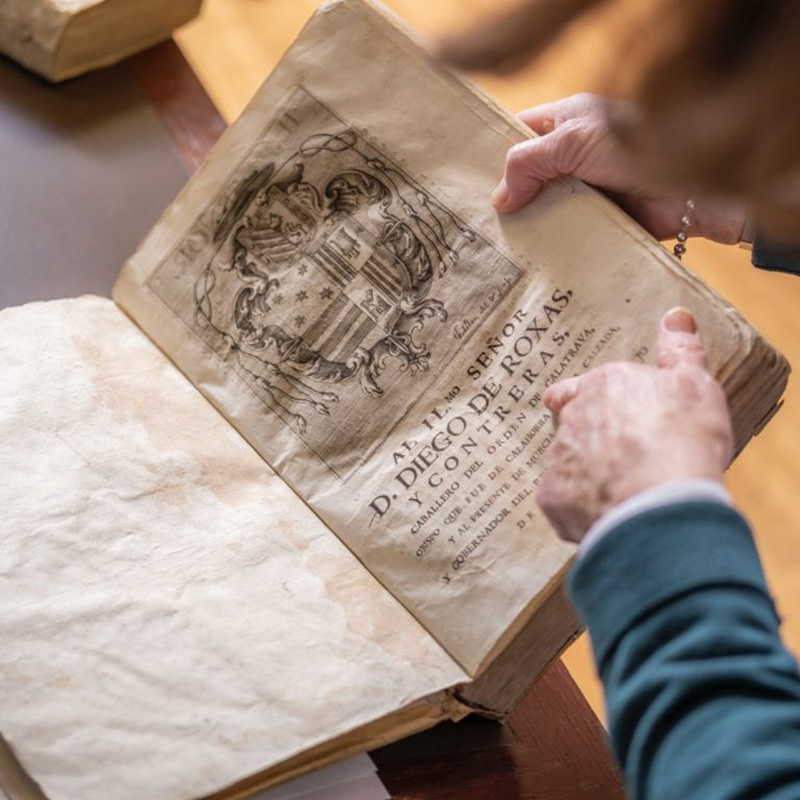 AL IL.MO SEÑOR
D. DIEGO DE ROXAS,
Y CONTRERAS,
CABALLERO DEL ORDEN DE CALATRAVA,
OBISPO QUE FUE DE CALAHORRA CALZADA,
Y AL PRESENTE DE MURCIA
Y GOBERNADOR DEL
DE